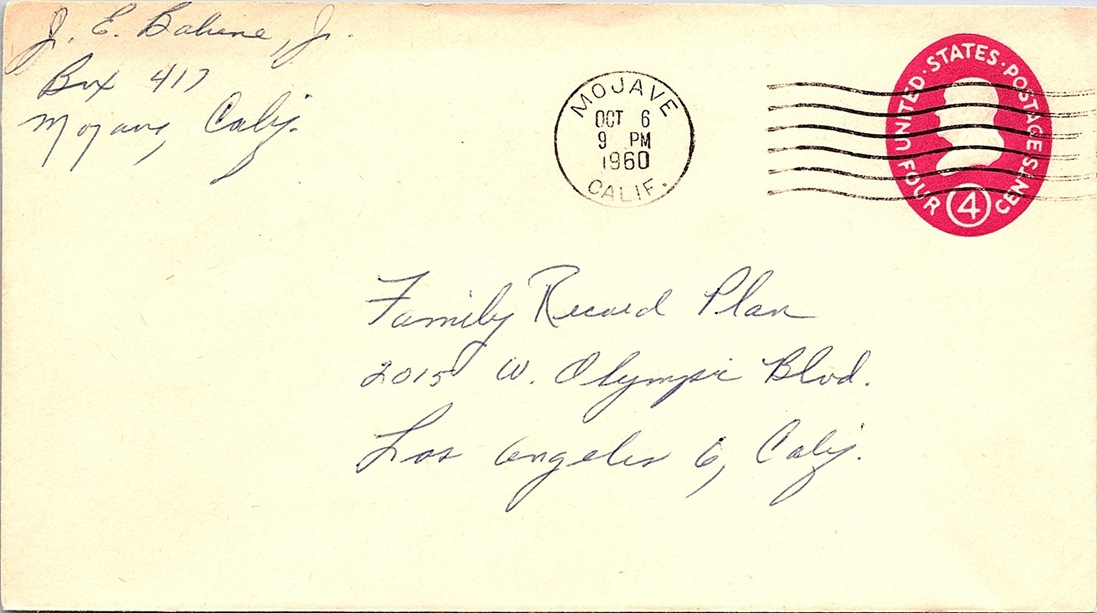 J. E. Babine, Jr.
Box 417
Mojave, Calif.
MOJAVE
OCT 6
9 PM
1960
CALIF.
UNITED·STATES·POSTAGE
FOUR 4 CENTS
Family Record Plan
2015 W. Olympic Blvd.
Los Angeles 6, Calif.